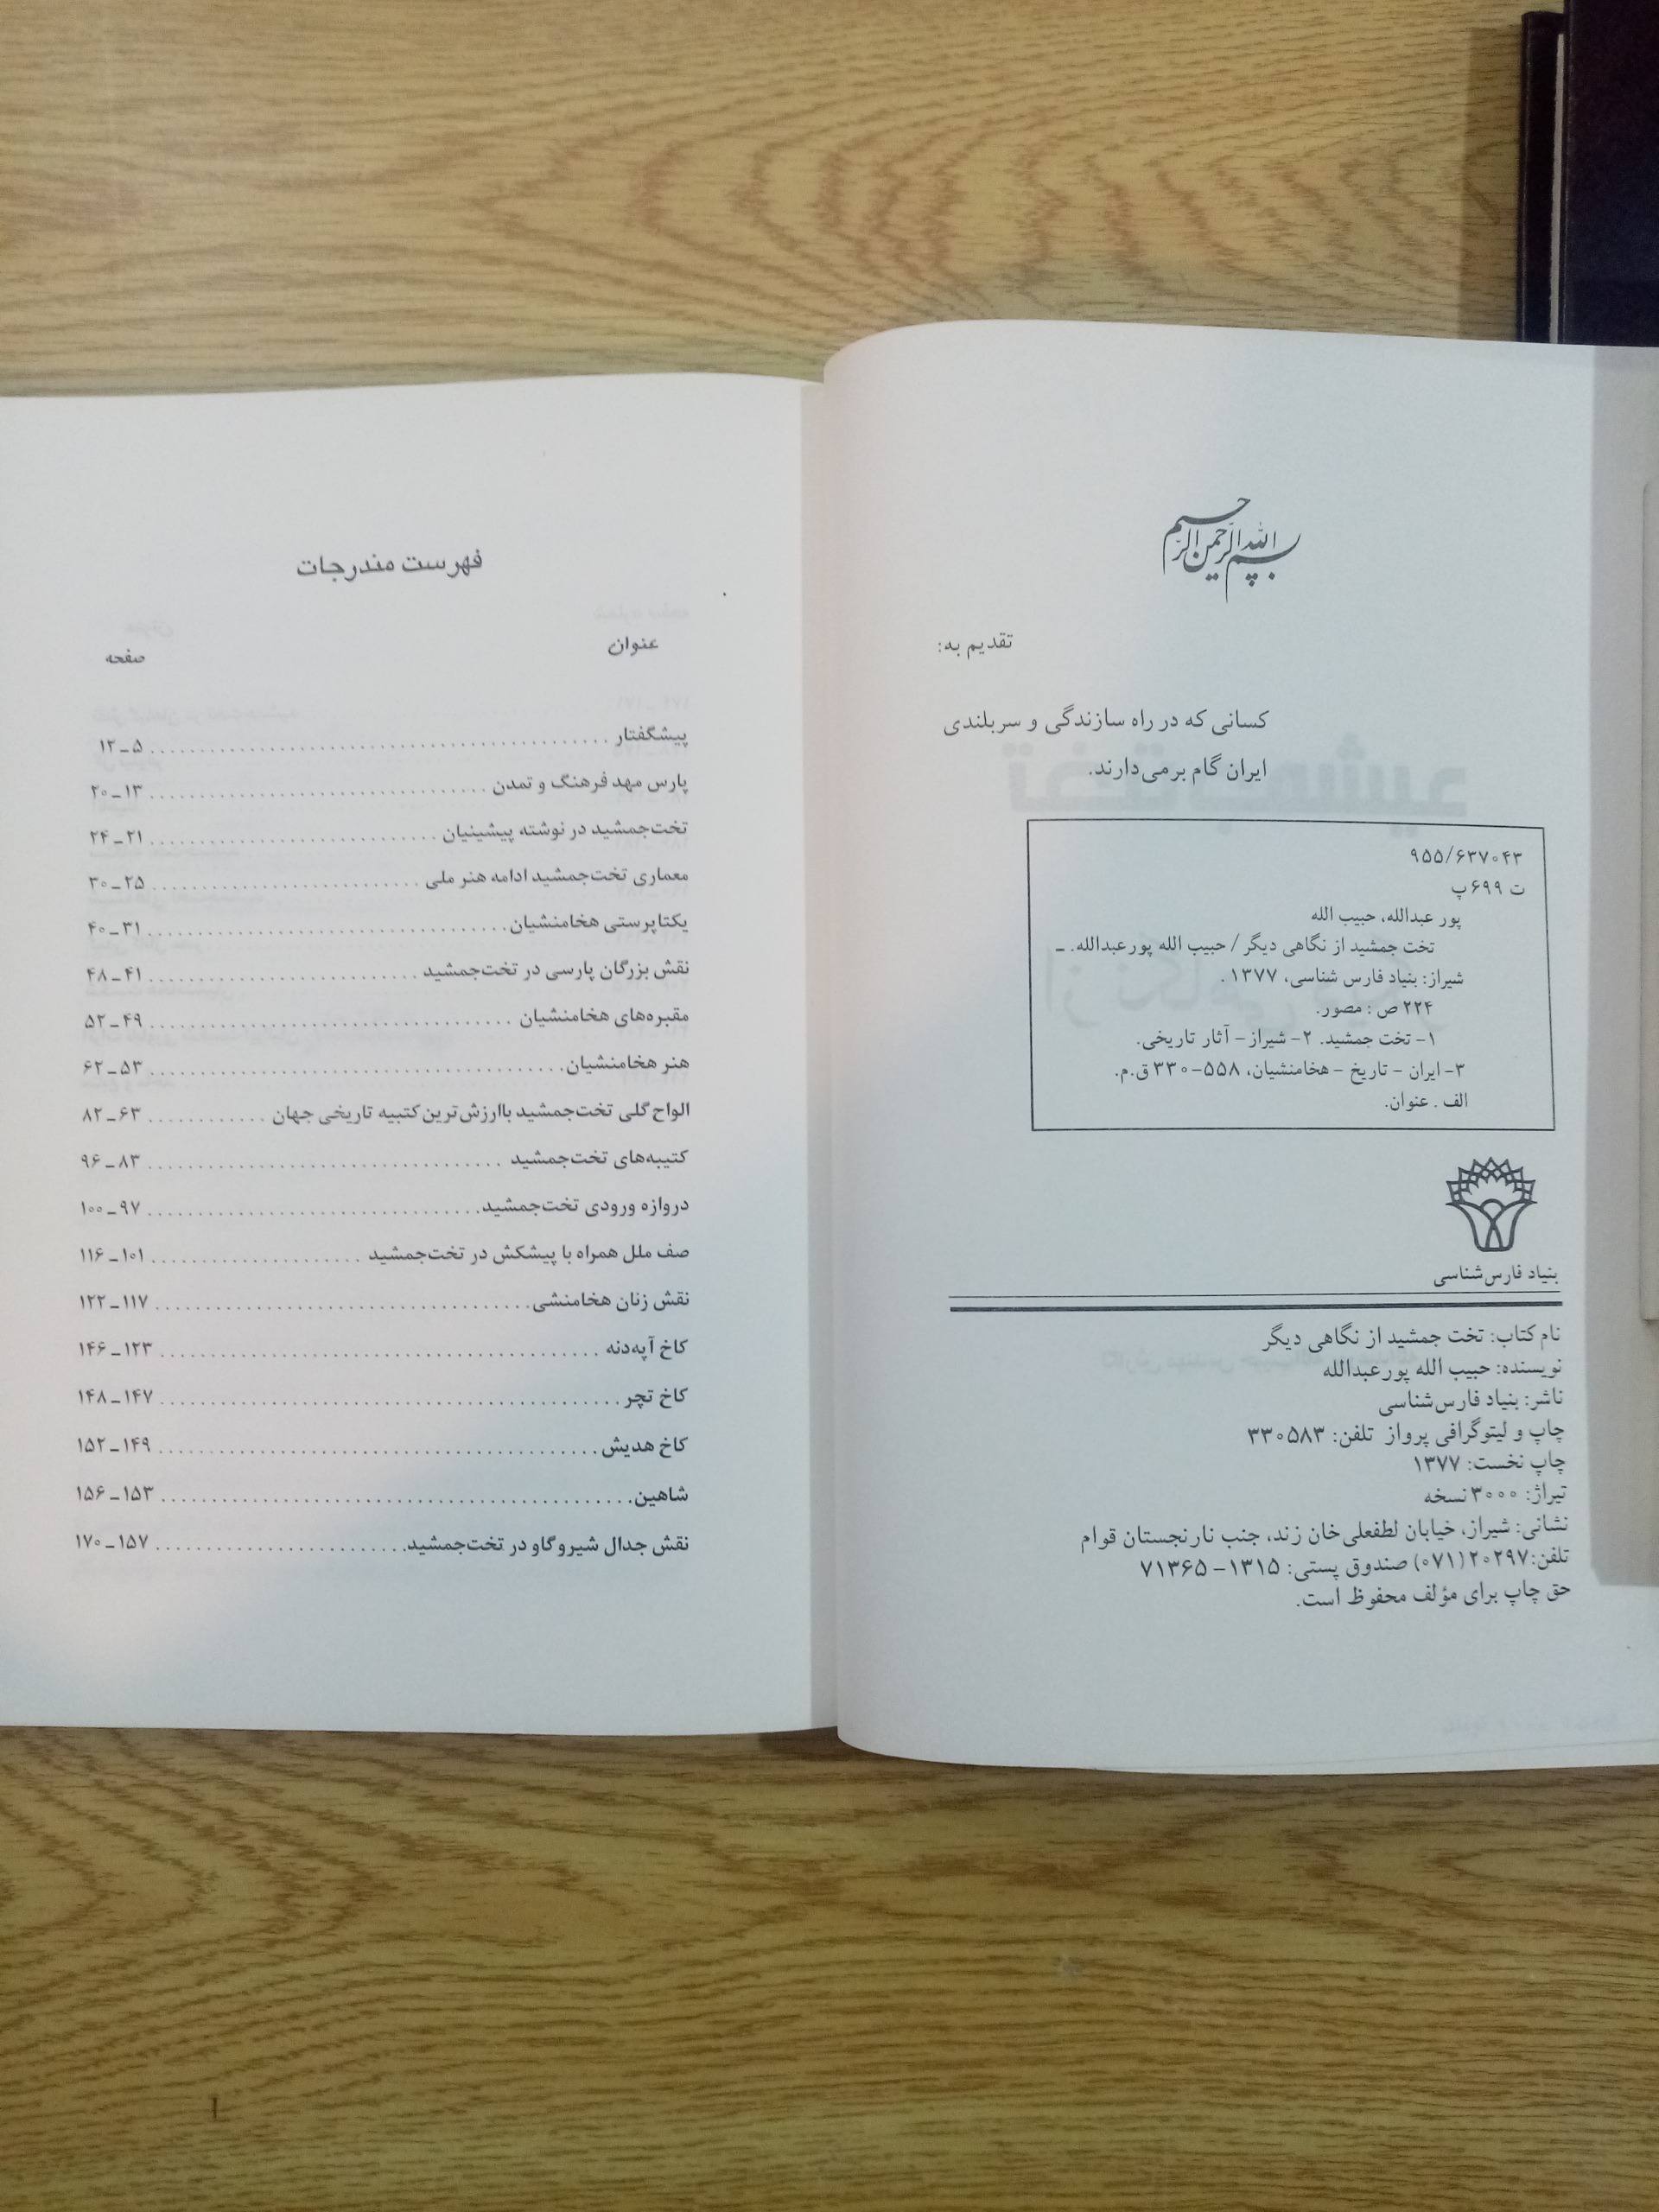 بسم الله الرحمن الرحیم
تقدیم به:
کسانی که در راه سازندگی و سربلندی
ایران گام برمی‌دارند.
۹۵۵/۶۳۷۰۴۳
ت ۶۹۹پ
پور عبدالله، حبیب الله
تخت جمشید از نگاهی دیگر / حبیب الله پورعبدالله. ـ
شیراز: بنیاد فارس شناسی، ۱۳۷۷ .
۲۲۴ ص : مصور.
۱- تخت جمشید. ۲- شیراز - آثار تاریخی.
۳- ایران - تاریخ - هخامنشیان، ۵۵۸-۳۳۰ ق.م.
الف . عنوان.
بنیاد فارس‌شناسی
نام کتاب: تخت جمشید از نگاهی دیگر
نویسنده: حبیب الله پورعبدالله
ناشر: بنیاد فارس‌شناسی
چاپ و لیتوگرافی پرواز تلفن: ۳۳۰۵۸۳
چاپ نخست: ۱۳۷۷
تیراژ: ۳۰۰۰ نسخه
نشانی: شیراز، خیابان لطفعلی‌خان زند، جنب نارنجستان قوام
تلفن:۲۰۲۹۷(۰۷۱) صندوق پستی: ۱۳۱۵- ۷۱۳۶۵
حق چاپ برای مؤلف محفوظ است.
فهرست مندرجات
عنوان صفحه
پیشگفتار ........ ۵ـ۱۲
پارس مهد فرهنگ و تمدن ........ ۱۳ـ۲۰
تخت‌جمشید در نوشته پیشینیان ........ ۲۱ـ۲۴
معماری تخت‌جمشید ادامه هنر ملی ........ ۲۵ـ۳۰
یکتاپرستی هخامنشیان ........ ۳۱ـ۴۰
نقش بزرگان پارسی در تخت‌جمشید ........ ۴۱ـ۴۸
مقبره‌های هخامنشیان ........ ۴۹ـ۵۲
هنر هخامنشیان ........ ۵۳ـ۶۲
الواح گلی تخت‌جمشید باارزش‌ترین کتیبه تاریخی جهان ........ ۶۳ـ۸۲
کتیبه‌های تخت‌جمشید ........ ۸۳ـ۹۶
دروازه ورودی تخت‌جمشید ........ ۹۷ـ۱۰۰
صف ملل همراه با پیشکش در تخت‌جمشید ........ ۱۰۱ـ۱۱۶
نقش زنان هخامنشی ........ ۱۱۷ـ۱۲۲
کاخ آپه‌دنه ........ ۱۲۳ـ۱۴۶
کاخ تچر ........ ۱۴۷ـ۱۴۸
کاخ هدیش ........ ۱۴۹ـ۱۵۲
شاهین ........ ۱۵۳ـ۱۵۶
نقش جدال شیروگاو در تخت‌جمشید ........ ۱۵۷ـ۱۷۰